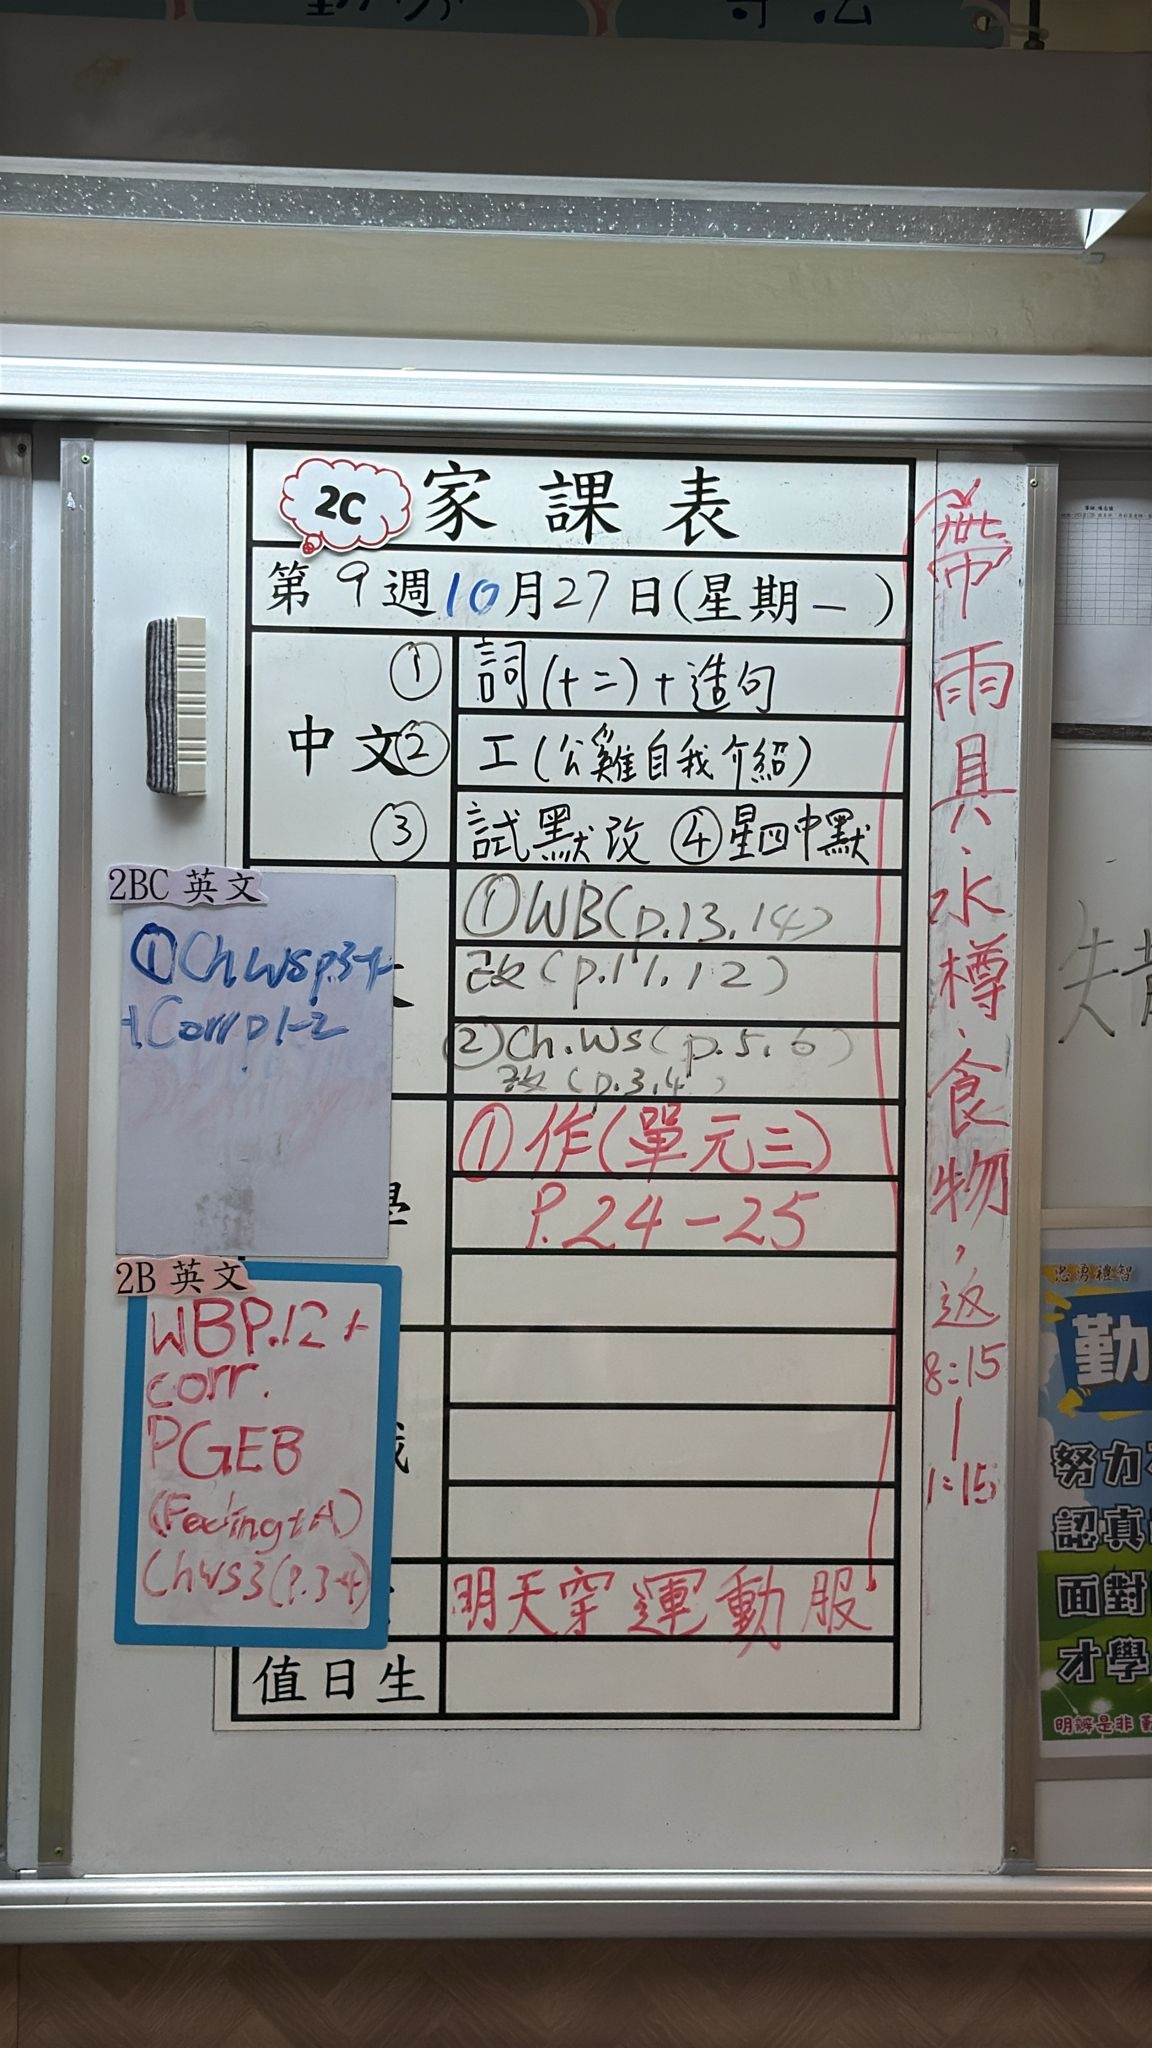 2C 家課表
第9週10月27日(星期一)
中文
① 詞(十二)+造句
② 工(公雞自我介紹)
③ 試默改 ④星四中默
①WB(p.13.14)
改(p.11.12)
②Ch.WS(p.5.6)
改(p.3.4)
①作(單元三)
P.24-25
明天穿運動服
值日生
2BC 英文
①Ch.WSp.3-4
+Corr p1-2
2B 英文
WBP.12+
corr.
PGEB
ChWS3(P.3-4)
帶雨具、水樽、食物，返
8:15
|
1:15
勤
努力
認真
面對
才學
明辨是非